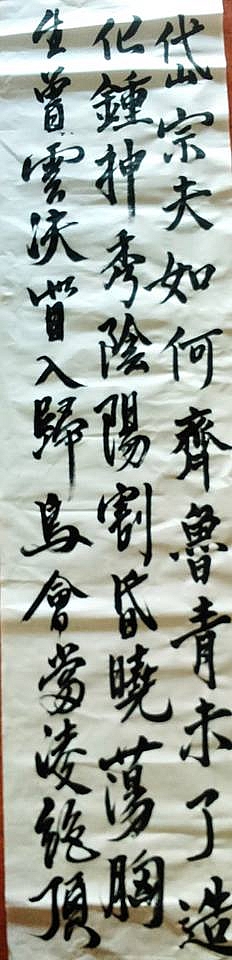 岱宗夫如何齊魯青未了造
化鍾神秀陰陽割昏曉蕩胸
生曾雲决眥入歸鳥會當凌絕頂